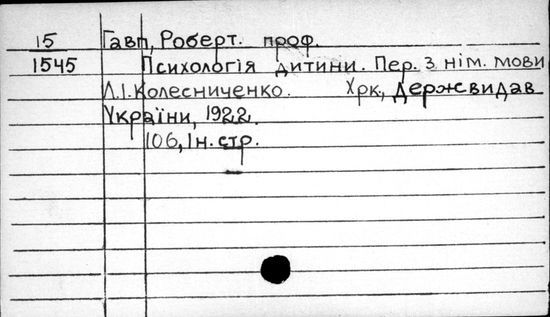 15 Гавп, Роберт. проф.
1545 Психологія дитини. Пер. з нім. мови
Л.І. Колесниченко. Хрк, Держвидав
України, 1922.
106, Ін. стр.